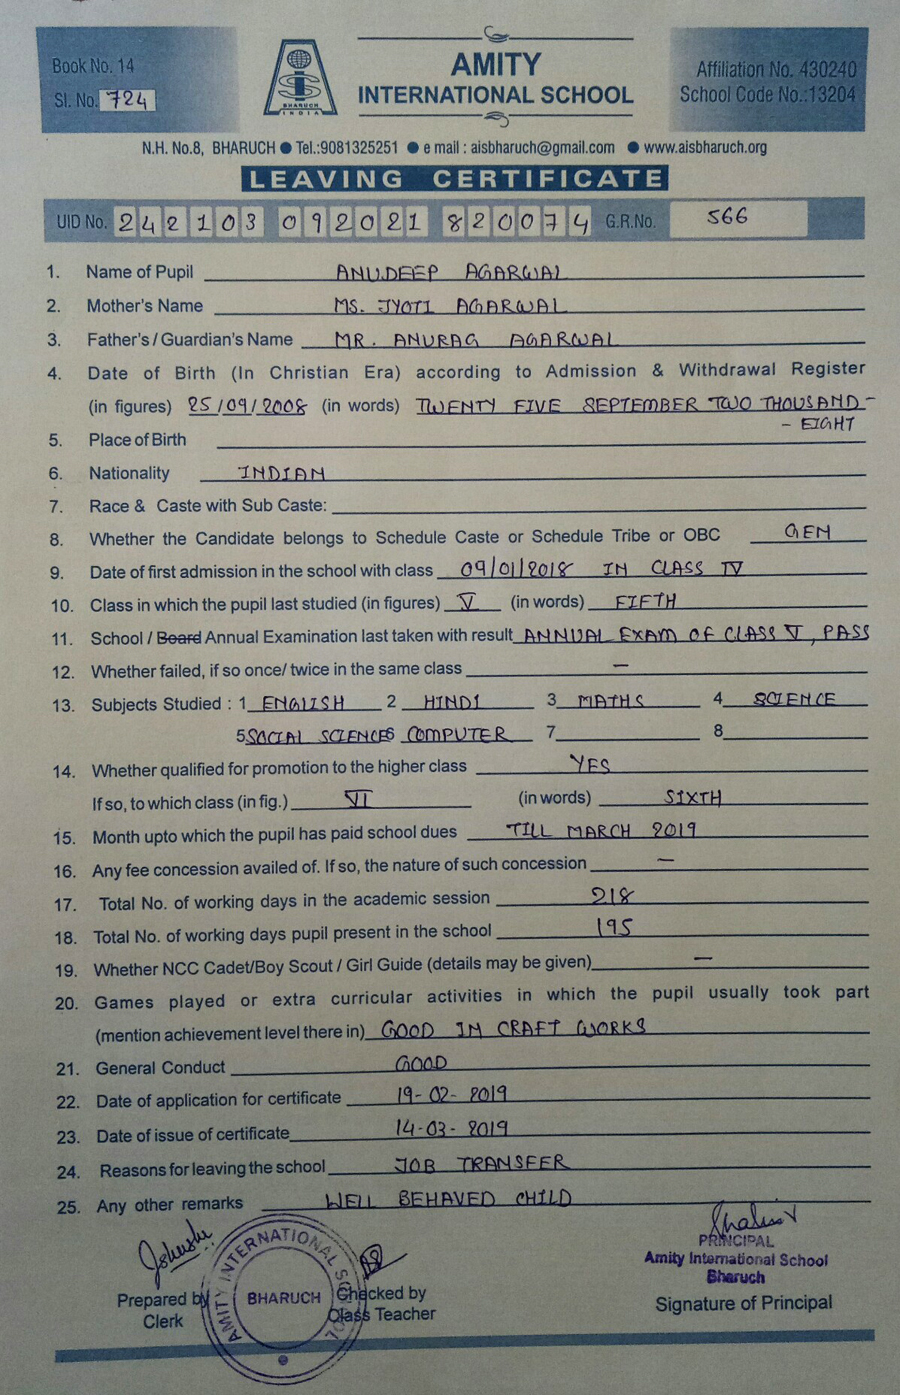 Book No. 14
Sl. No. 724
BHARUCH
INDIA
AMITY
INTERNATIONAL SCHOOL
Affiliation No. 430240
School Code No.:13204
N.H. No.8, BHARUCH ● Tel.:9081325251 ● e mail : aisbharuch@gmail.com ● www.aisbharuch.org
LEAVING CERTIFICATE
UID No. 242103 092021 820074 G.R.No. 566
1. Name of Pupil ANUDEEP AGARWAL
2. Mother's Name MS. JYOTI AGARWAL
3. Father's / Guardian's Name MR. ANURAG AGARWAL
4. Date of Birth (In Christian Era) according to Admission & Withdrawal Register
(in figures) 25/09/2008 (in words) TWENTY FIVE SEPTEMBER TWO THOUSAND -
- EIGHT
5. Place of Birth
6. Nationality INDIAN
7. Race & Caste with Sub Caste:
8. Whether the Candidate belongs to Schedule Caste or Schedule Tribe or OBC GEN
9. Date of first admission in the school with class 09/01/2018 IN CLASS IV
10. Class in which the pupil last studied (in figures) V (in words) FIFTH
11. School / Board Annual Examination last taken with result ANNUAL EXAM OF CLASS V, PASS
12. Whether failed, if so once/ twice in the same class —
13. Subjects Studied : 1 ENGLISH 2 HINDI 3 MATHS 4 SCIENCE
5 SOCIAL SCIENCE 6 COMPUTER 7 8
14. Whether qualified for promotion to the higher class YES
If so, to which class (in fig.) VI (in words) SIXTH
15. Month upto which the pupil has paid school dues TILL MARCH 2019
16. Any fee concession availed of. If so, the nature of such concession —
17. Total No. of working days in the academic session 218
18. Total No. of working days pupil present in the school 195
19. Whether NCC Cadet/Boy Scout / Girl Guide (details may be given) —
20. Games played or extra curricular activities in which the pupil usually took part
(mention achievement level there in) GOOD IN CRAFT WORKS
21. General Conduct GOOD
22. Date of application for certificate 19-02-2019
23. Date of issue of certificate 14-03-2019
24. Reasons for leaving the school JOB TRANSFER
25. Any other remarks WELL BEHAVED CHILD
PRINCIPAL
Amity International School
Bharuch
Signature of Principal
Prepared by
Clerk
AMITY INTERNATIONAL SCHOOL
BHARUCH
Checked by
Class Teacher